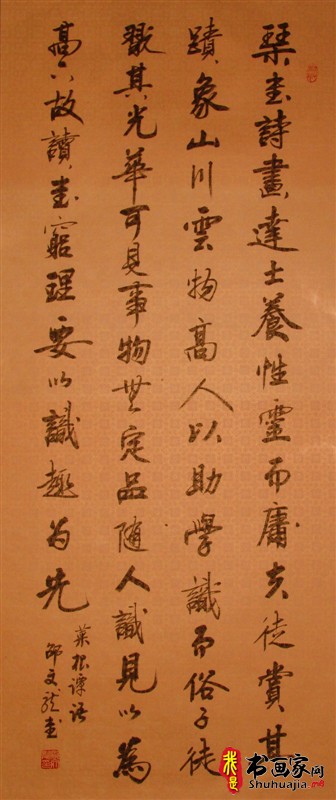 琹書詩畫達士養性靈而庸夫徒賞其
蹟象山川雲物高人以助學識而俗子徒
翫其光華可見事物無定品隨人識見以為
高下故讀書窮理要以識趣為先
菜根譚語
邵文龍書
我是书画家网
Shuhuajia.net